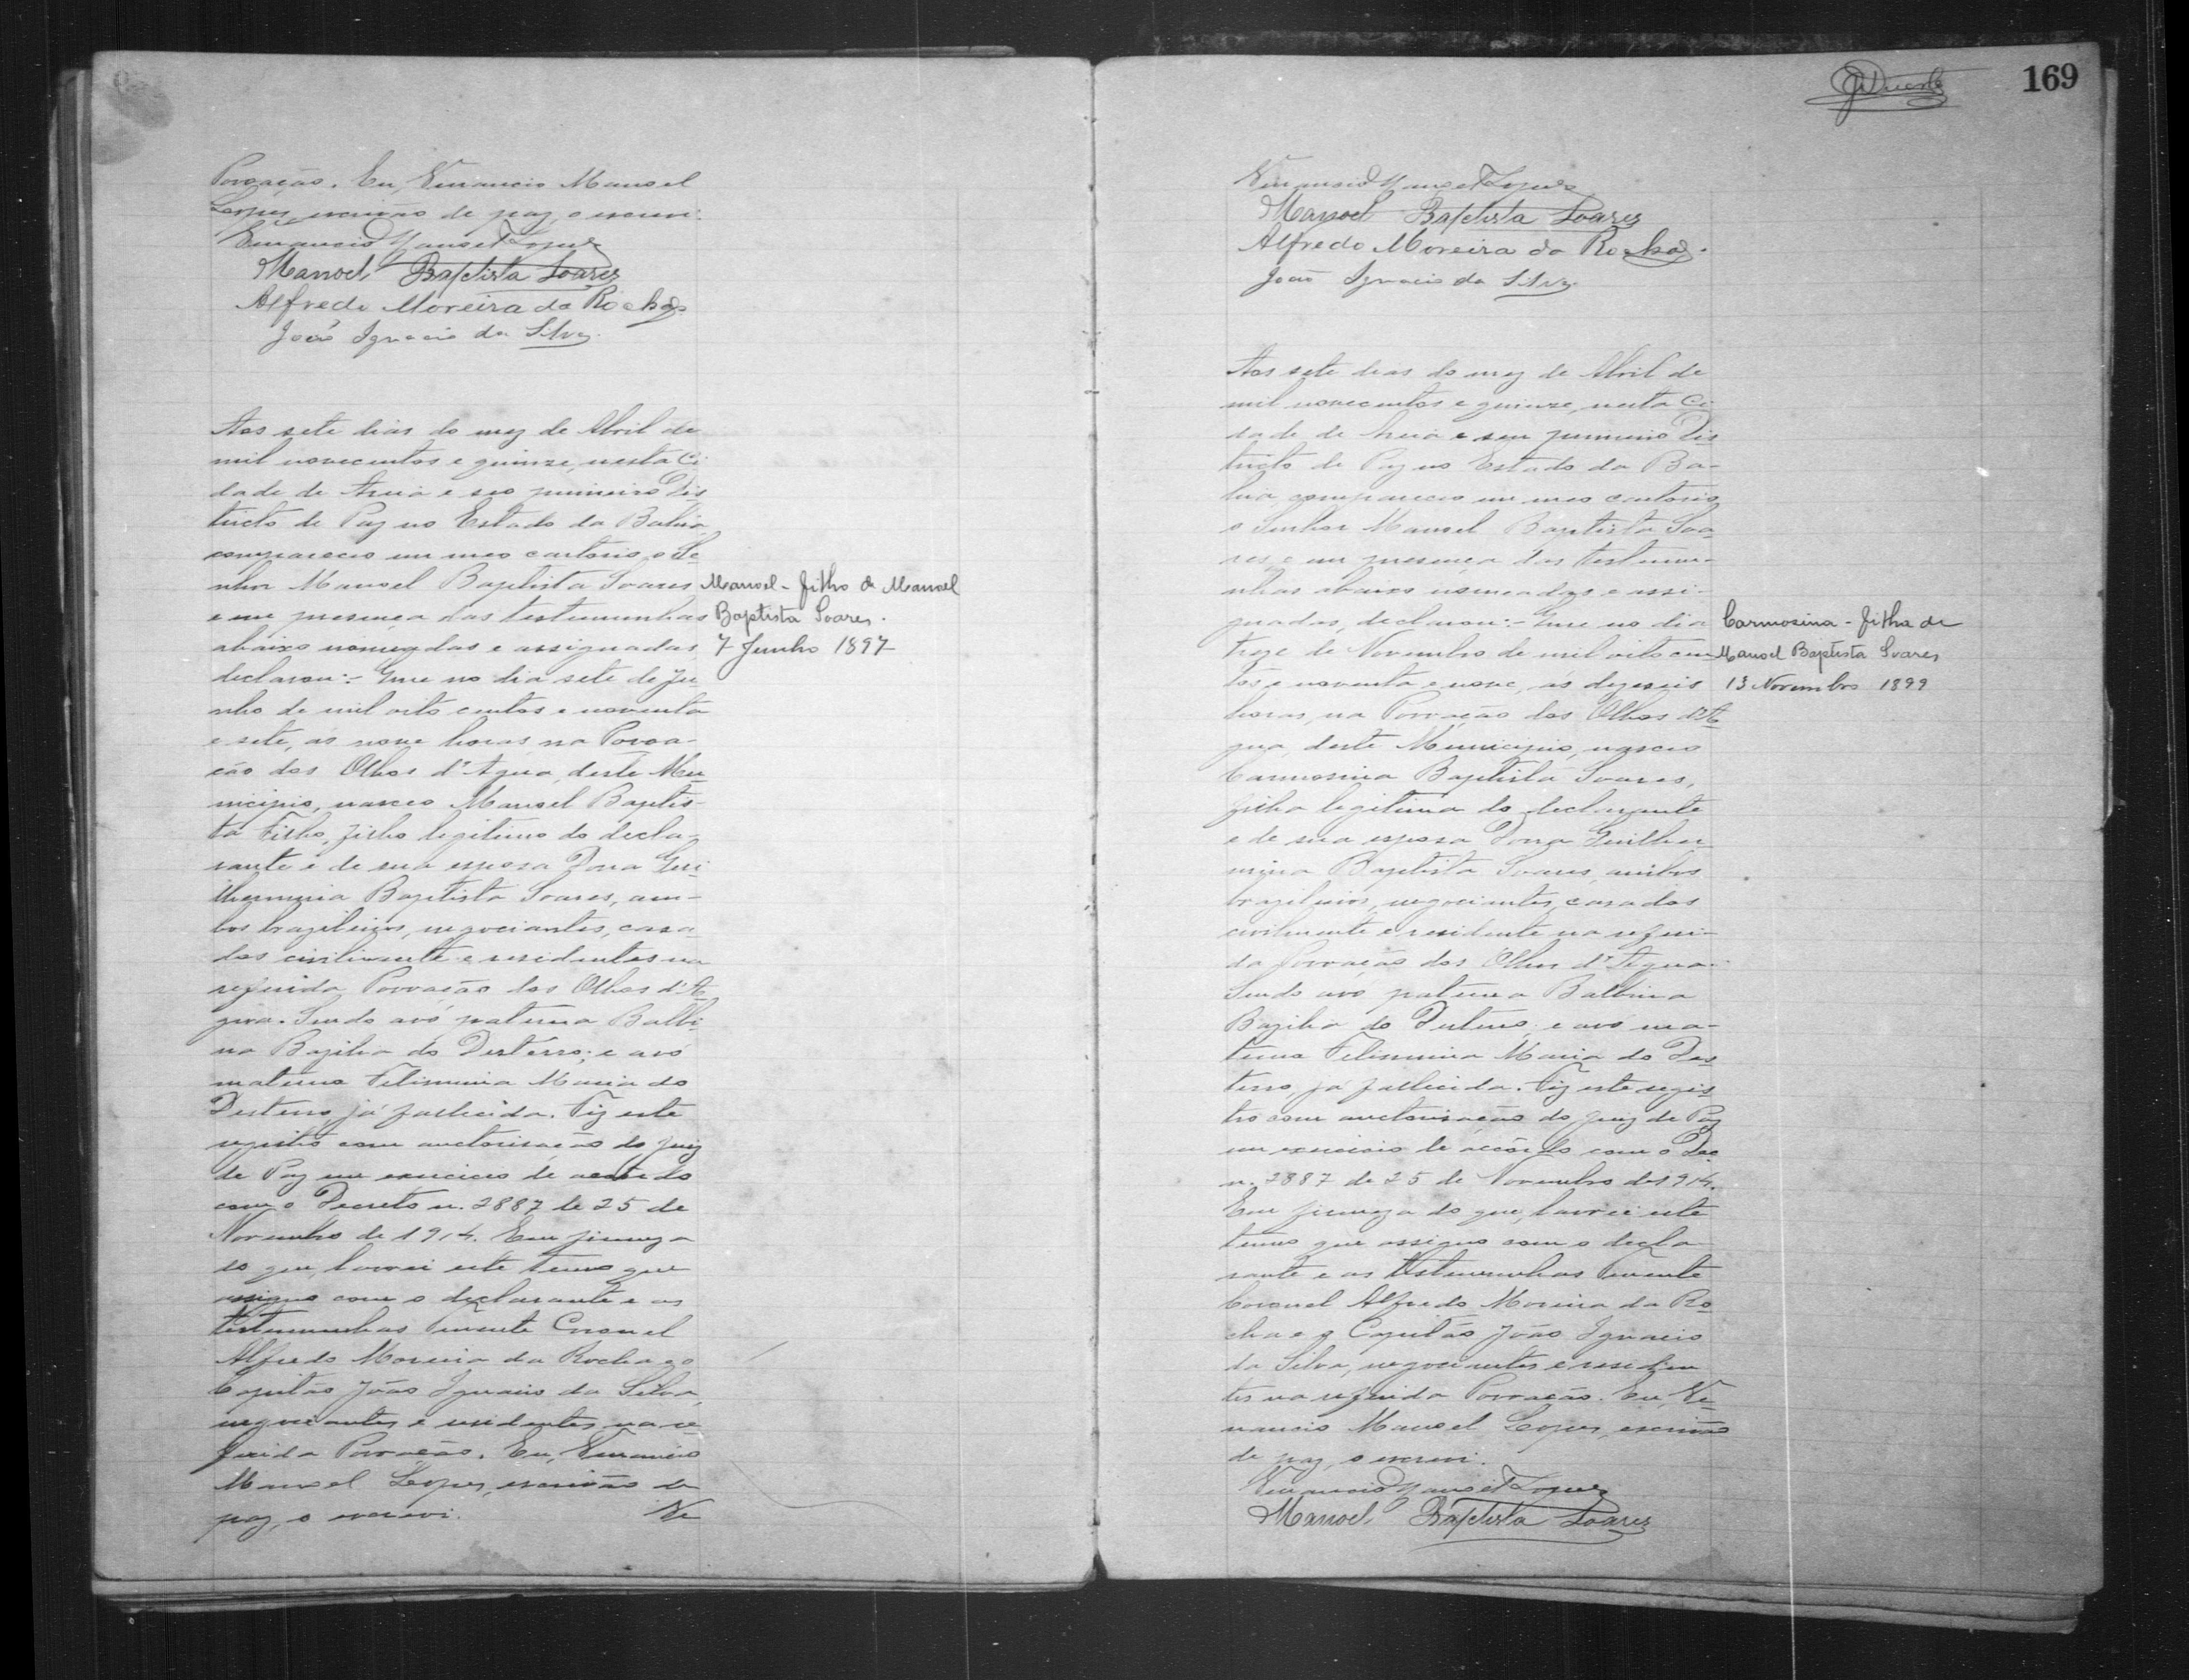 Povoação. Eu, Venancio Manoel
Lopes, escrivão de paz, o escrevi.
Venancio Manoel Lopes
Manoel Baptista Soares
Alfredo Moreira da Rocha
João Ignacio da Silva
Aos sete dias do mez de Abril de
mil novecentos e quinze, nesta Ci
dade de Areia e seo primeiro Dis
tricto de Paz no Estado da Bahia,
compareceo em meo cartorio o Se
nhor Manoel Baptista Soares
e em presença das testemunhas
abaixo nomeadas e assignadas,
declarou:- Que no dia sete de Ju
nho de mil oito centos e noventa
e sete, as nove horas na Povoa-
ção dos Olhos d'Agua, deste Mu
nicipio, nasceo Manoel Baptis-
ta Filho, filho legitimo do decla-
rante e de sua esposa Dona Gui
lhermina Baptista Soares, am-
bos brazileiros, negociantes, casa-
dos civilmente e residentes na
referida Povoação dos Olhos d'A
gua. Sendo avó paterna Balbi
na Bazilia do Desterro; e avó
materna Felismina Maria do
Desterro já fallecida. Fiz este
registro com auctorisação do Juiz
de Paz em exercicio de accordo
com o Decreto n. 2887 de 25 de
Novembro de 1914. Em firmeza
do que, lavrei este termo que
assigno com o declarante e as
testemunhas Tenente Coronel
Alfredo Moreira da Rocha e o
Capitão João Ignacio da Silva,
negociantes e residentes na re
ferida Povoação. Eu, Venancio
Manoel Lopes, escrivão de
paz, o escrevi. Ve
Manoel - filho de Manoel
Baptista Soares.
7 Junho 1897
169
Venancio Manoel Lopes
Manoel Baptista Soares
Alfredo Moreira da Rocha.
João Ignacio da Silva
Aos sete dias do mez de Abril de
mil novecentos e quinze, nesta Ci
dade de Areia e seu primeiro Dis
tricto de Paz no Estado da Ba-
hia, compareceo em meo cartorio
o Senhor Manoel Baptista Soa
res, e em presença das testemu-
nhas abaixo nomeadas e assi-
gnadas, declarou:- Que no dia
treze de Novembro de mil oito cen
tos e noventa e nove, as dezeseis
horas, na Povoação dos Olhos d'A
gua, deste Municipio, nasceo
Carmosina Baptista Soares,
filha legitima do declarante
e de sua esposa Dona Guilher
mina Baptista Soares, ambos
brazileiros, negociantes, casados
civilmente e residente na referi-
da Povoação dos Olhos d'Agua.
Sendo avó paterna Balbina
Bazilia do Desterro; e avó ma-
terna Felismina Maria do Des
terro, já fallecida. Fiz este regis
tro com auctorisação do Juiz de Paz
em exercicio de accôrdo com o Dec.
n. 2887 de 25 de Novembro de 1914.
Em firmeza do que, lavrei este
termo que assigno com o decla
rante e as testemunhas Tenente
Coronel Alfredo Moreira da Ro
cha e o Capitão João Ignacio
da Silva, negociantes e residen
tes na referida Povoação. Eu, Ve
nancio Manoel Lopes, escrivão
de paz, o escrevi.
Venancio Manoel Lopes
Manoel Baptista Soares
Carmosina - filha de
Manoel Baptista Soares
13 Novembro 1899